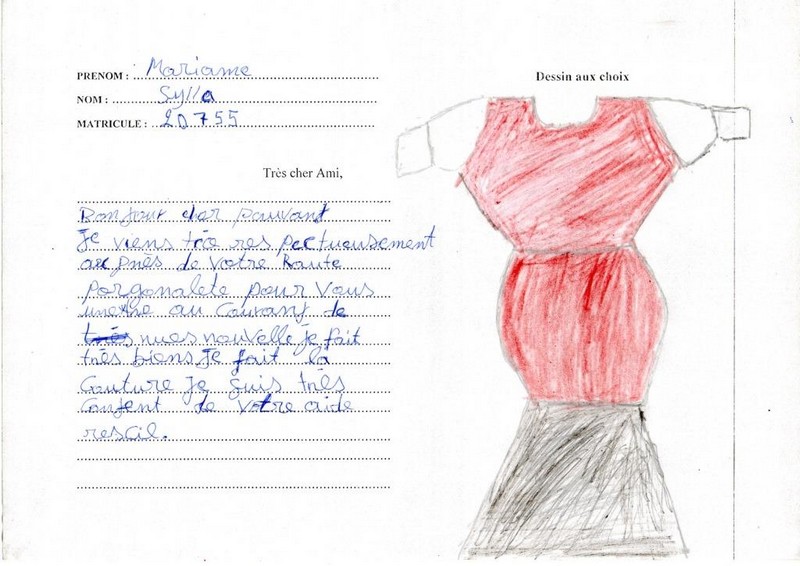 PRENOM : Mariame
NOM : Sylla
MATRICULE : 20755
Dessin aux choix
Très cher Ami,
Bonjour cher pauvant
Je viens trè res pectueusement
au près de Votre Haute
porgonalete pour Vous
au Courant de
mes nouvelle je fait
très biens Je fait la
Couture Je suis très
Content de Votre aide
rescil.